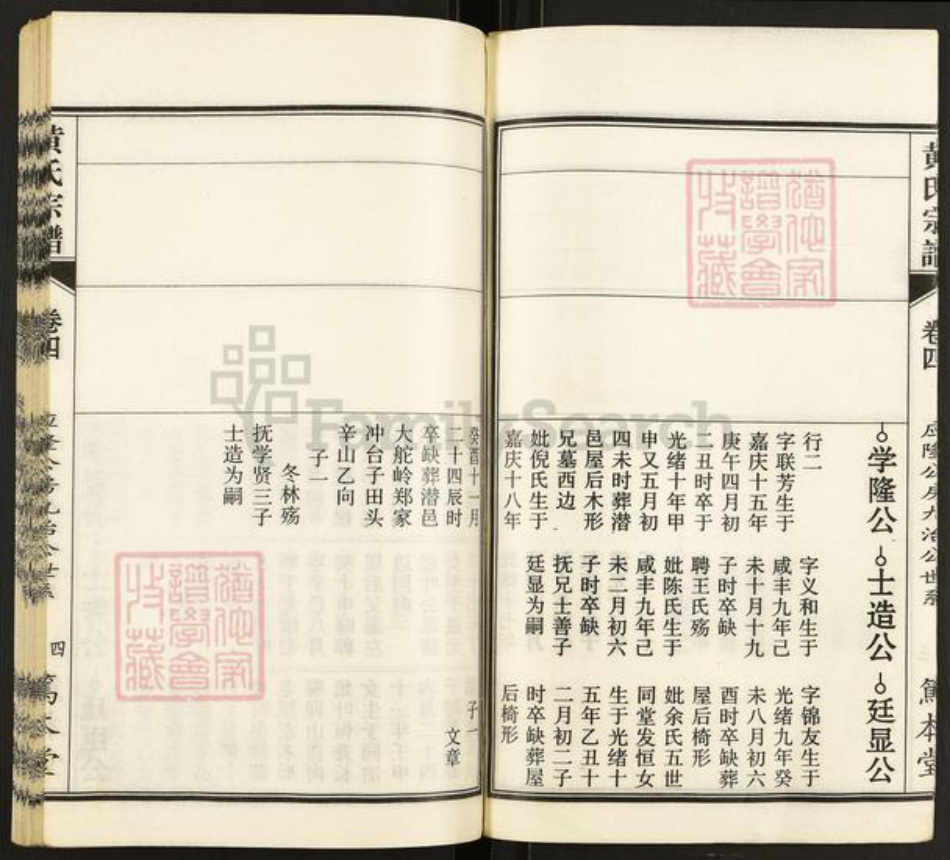 黄氏宗谱
卷四
笃本堂
学隆公
行二
字联芳生于
嘉庆十五年
庚午四月初
二丑时卒于
光绪十年甲
申又五月初
四未时葬潜
邑屋后木形
兄墓西边
妣倪氏生于
嘉庆十八年
癸酉十一月
二十四辰时
卒缺葬潜邑
大舵岭郑家
冲台子田头
辛山乙向
子一
冬林殇
抚学贤三子
士造为嗣
士造公
字义和生于
咸丰九年己
未十月十九
子时卒缺
聘王氏殇
妣陈氏生于
咸丰九年己
未二月初六
子时卒缺
抚兄士善子
廷显为嗣
廷显公
字锦友生于
光绪九年癸
未八月初六
酉时卒缺葬
屋后椅形
妣余氏五世
同堂发恒女
生于光绪十
五年乙丑十
二月初二子
时卒缺葬屋
后椅形
子一
文章
黄氏宗谱
卷四
四
笃本堂
FamilySearch